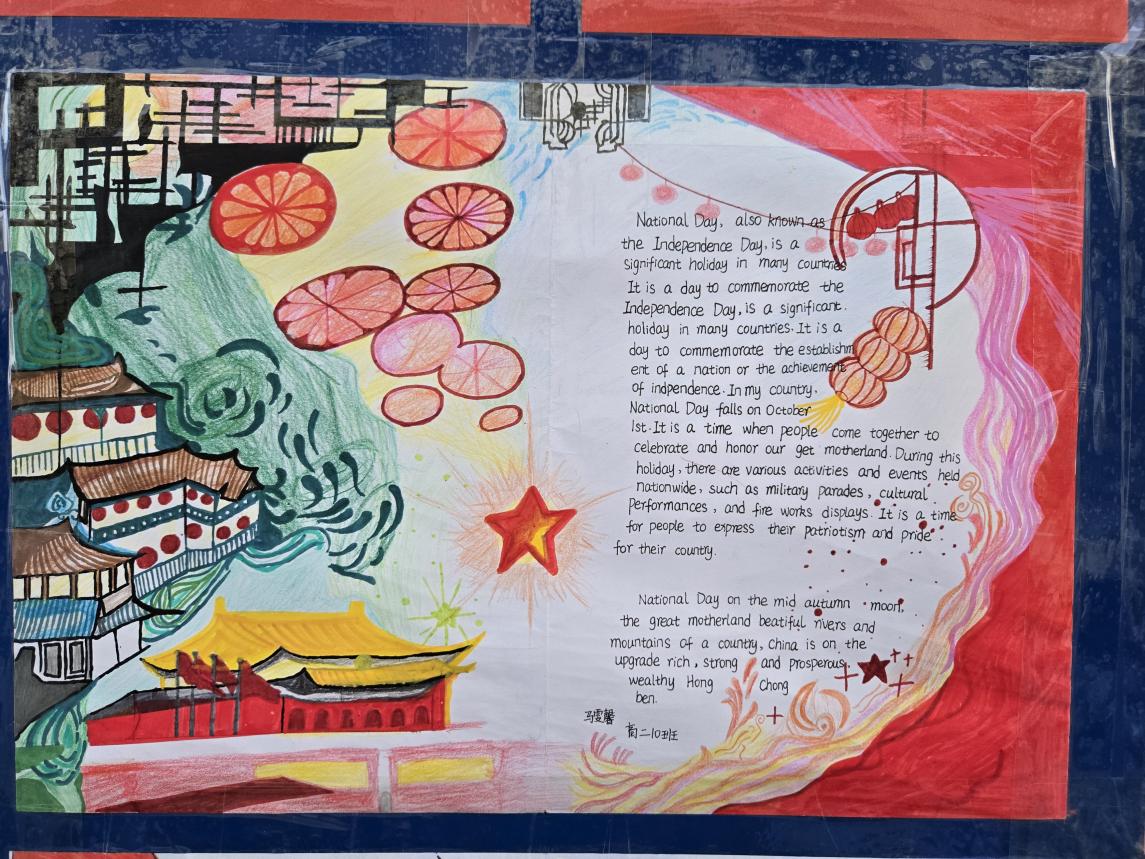 National Day, also known as
the Independence Day, is a
significant holiday in many countries
It is a day to commemorate the
Independence Day, is a significant.
holiday in many countries. It is a
day to commemorate the establishm
ent of a nation or the achievement
of indpendence. In my country,
National Day falls on October
1st. It is a time when people come together to
celebrate and honor our get motherland. During this
holiday, there are various activities and events held
nationwide, such as military parades, cultural
Performances, and fire works displays. It is a time
for people to express their patriotism and pride
for their country.
National Day on the mid autumn moon,
the great motherland beatiful rivers and
mountains of a country, China is on the
upgrade rich, strong and prosperous,
wealthy Hong Chong
ben.
马雯馨
高二10班